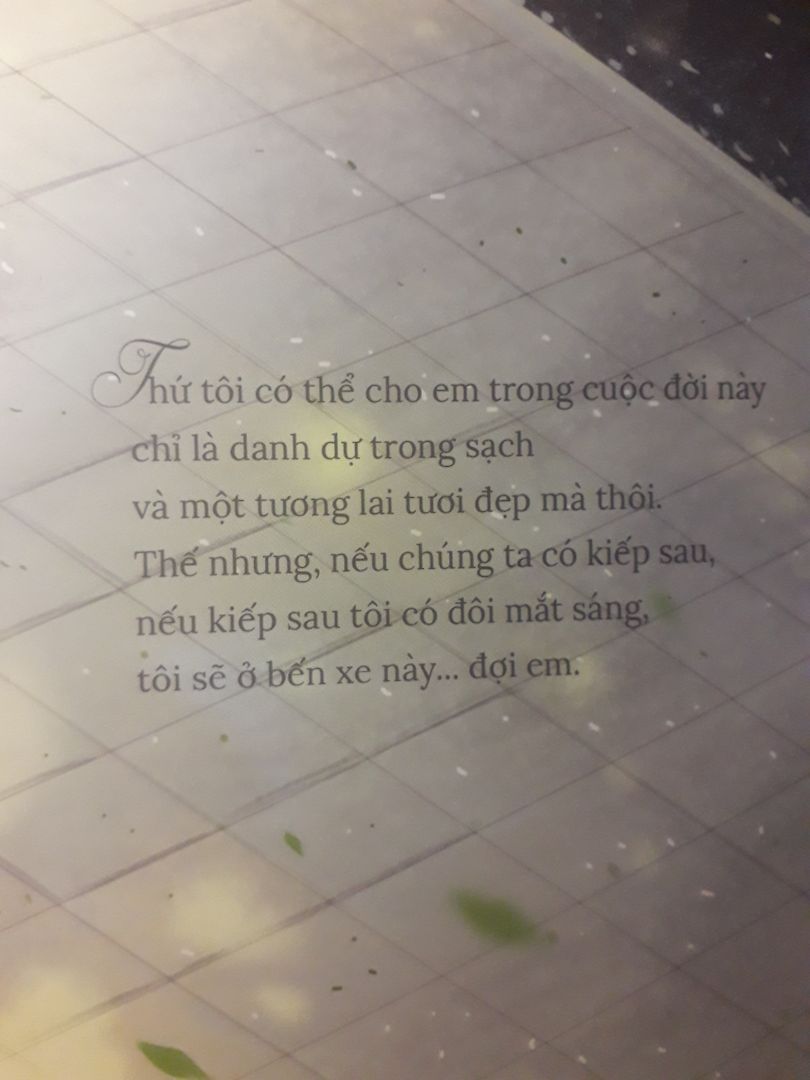 Thứ tôi có thể cho em trong cuộc đời này
chỉ là danh dự trong sạch
và một tương lai tươi đẹp mà thôi.
Thế nhưng, nếu chúng ta có kiếp sau,
nếu kiếp sau tôi có đôi mắt sáng,
tôi sẽ ở bến xe này... đợi em.